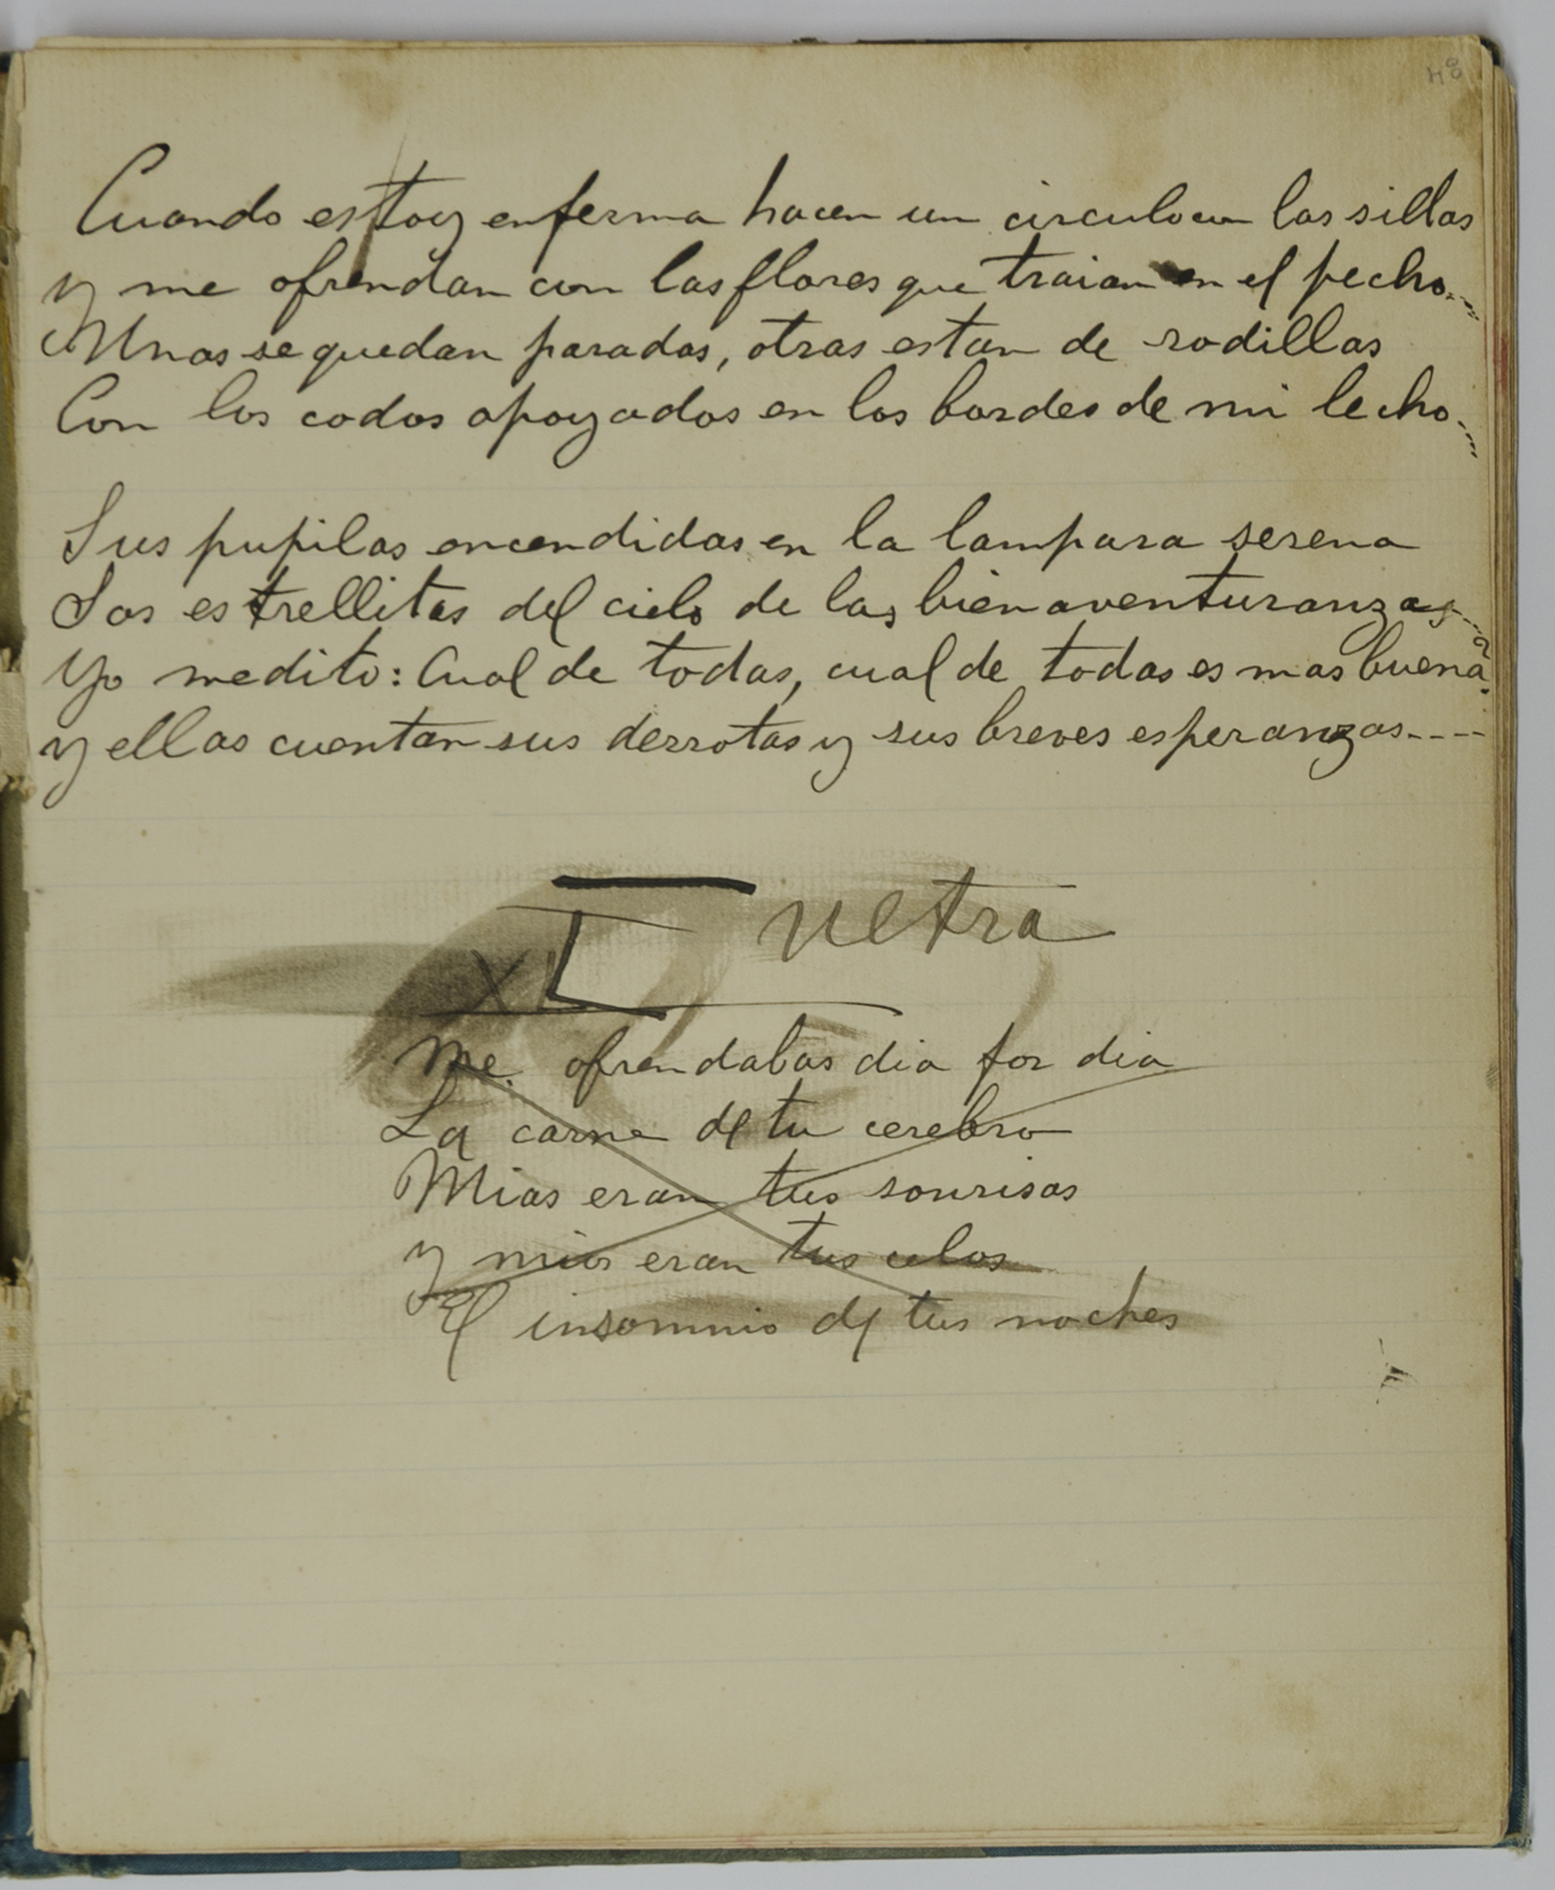 Cuando estoy enferma hacen un circulo con las sillas
y me ofrendan con las flores que traian en el pecho...
Unas se quedan paradas, otras estan de rodillas
Con los codos apoyados en los bordes de mi lecho...
Sus pupilas encendidas en la lampara serena
Son estrellitas del cielo de las bienaventuranzas...
Yo medito: Cual de todas, cual de todas es mas buena?
y ellas cuentan sus derrotas y sus breves esperanzas....
XL
Me ofrendabas dia por dia
La carne de tu cerebro
Mias eran tus sonrisas
y mios eran tus celos
El insomnio de tus noches